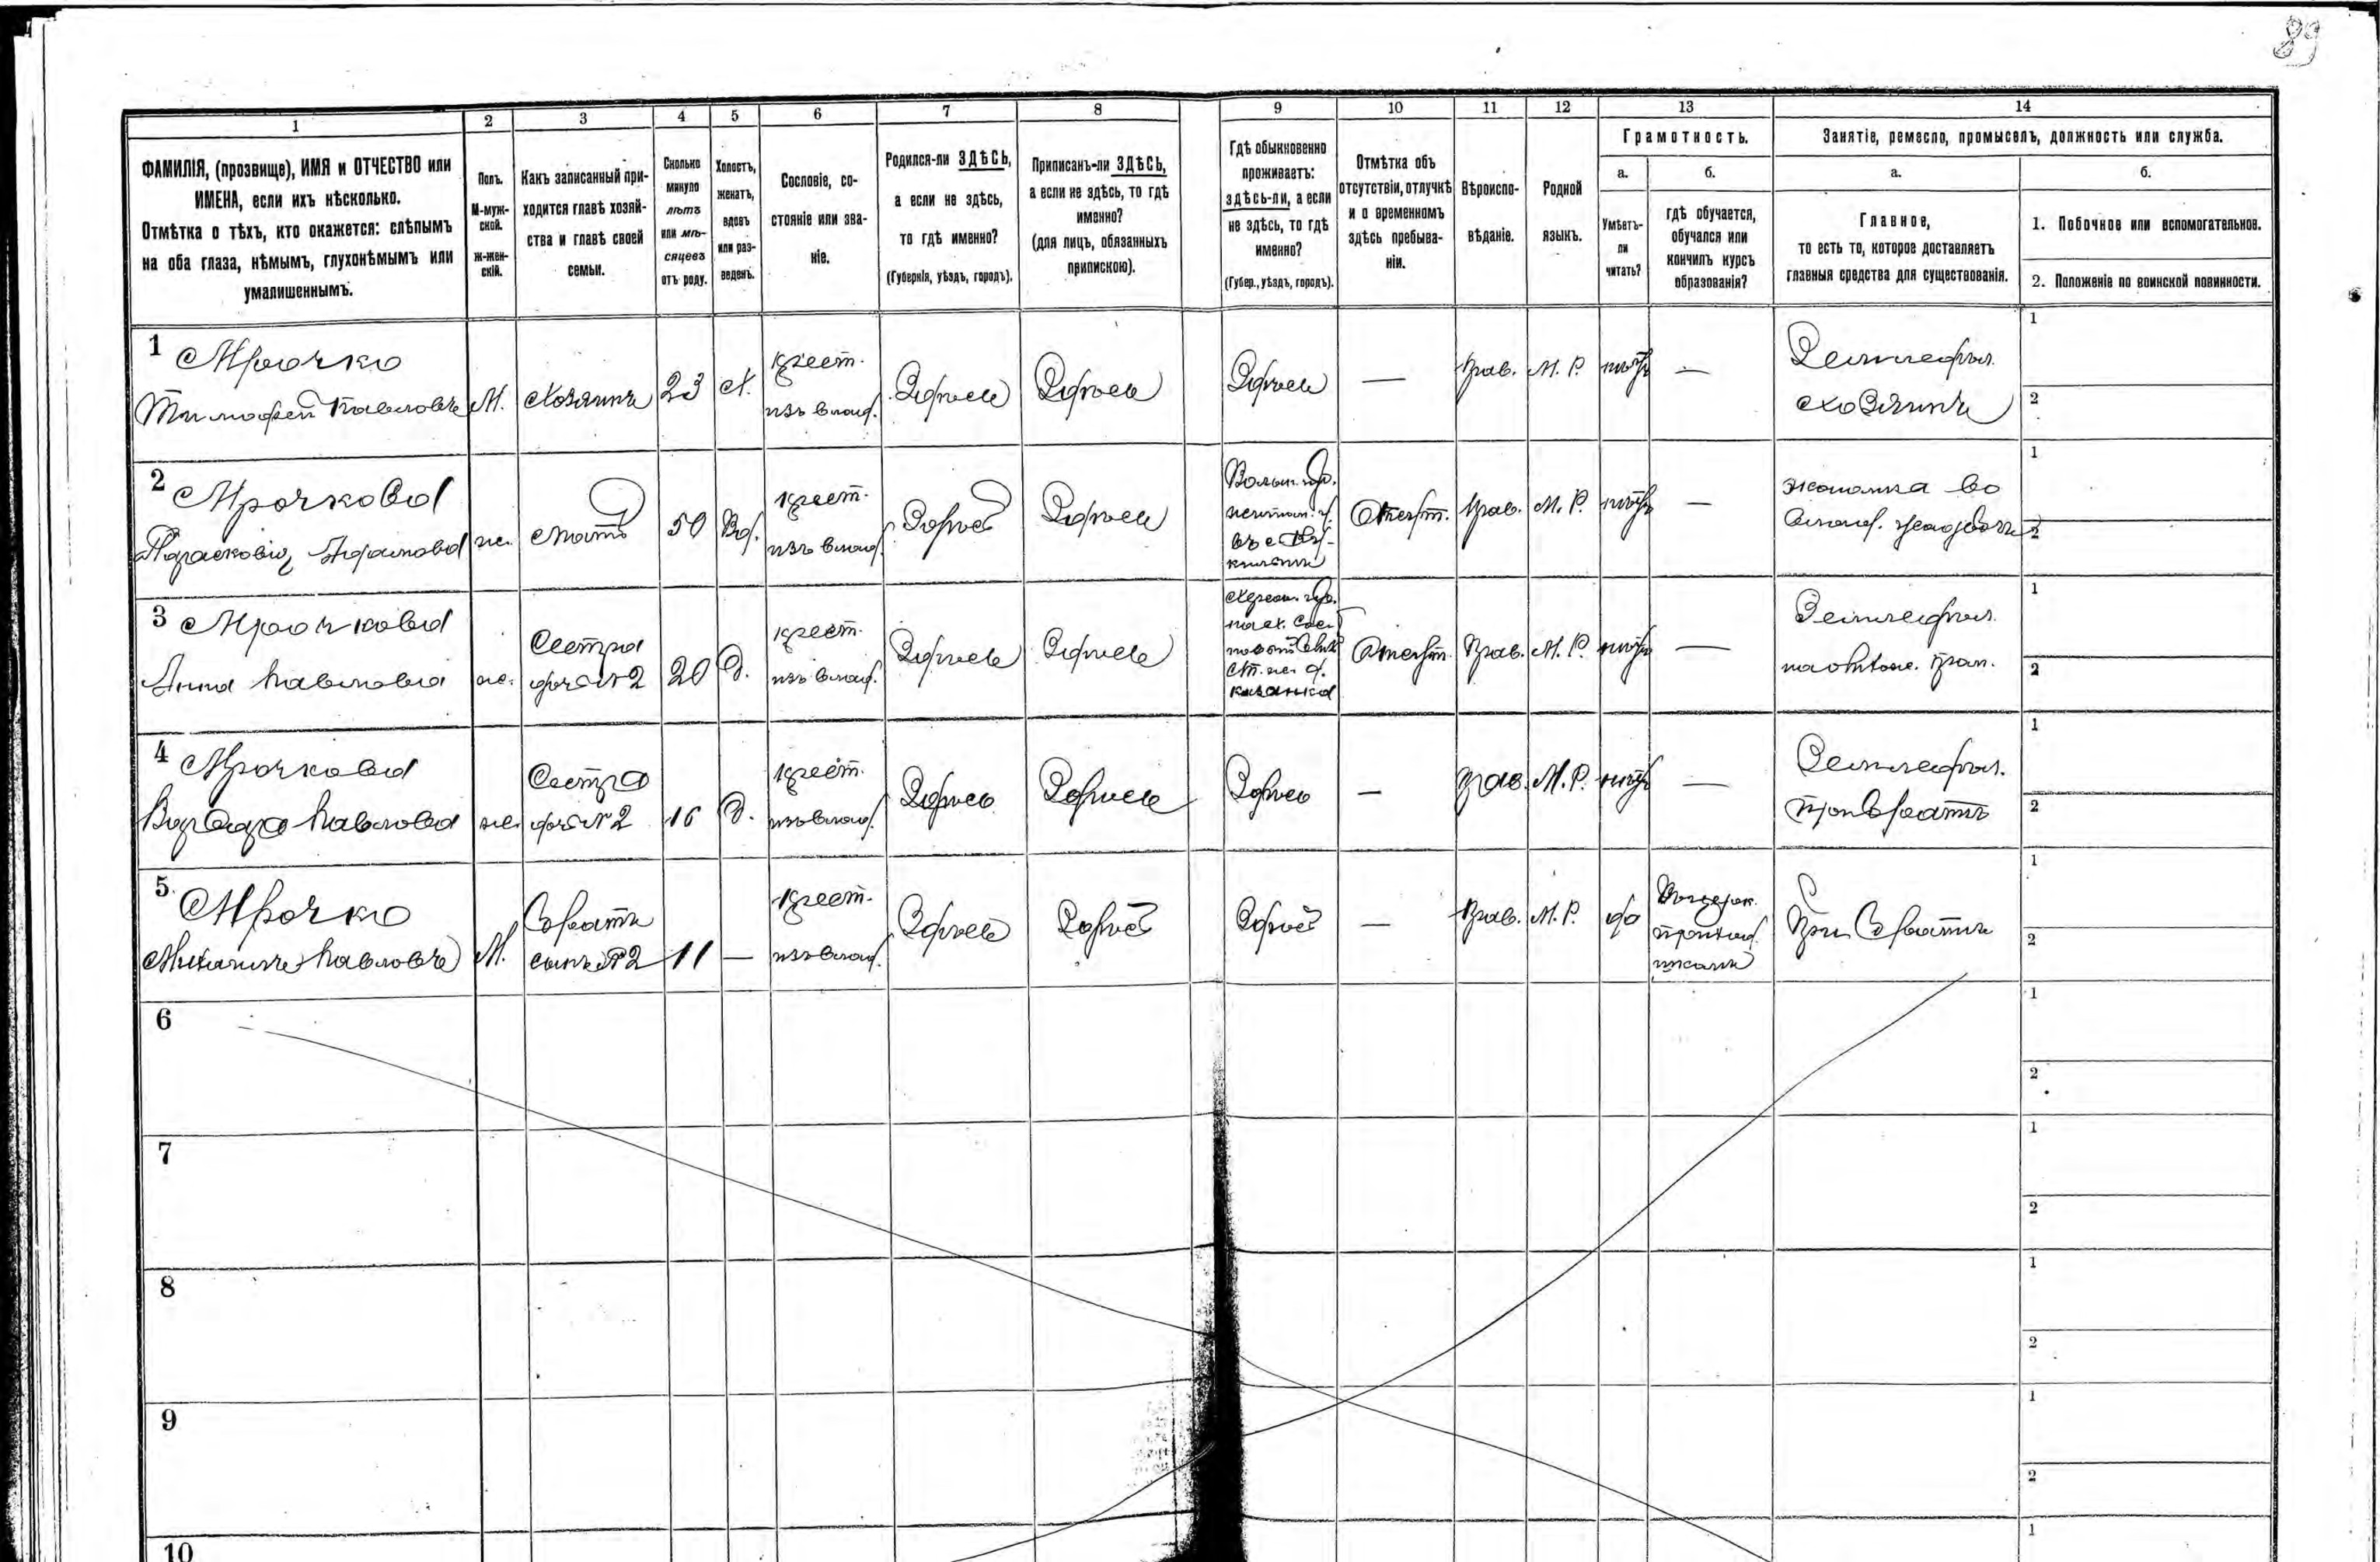 89
1 2 3 4 5 6 7 8 9 10 11 12 13 14
ФАМИЛІЯ, (прозвище), ИМЯ и ОТЧЕСТВО или
ИМЕНА, если ихъ нѣсколько.
Отмѣтка о тѣхъ, кто окажется: слѣпымъ
на оба глаза, нѣмымъ, глухонѣмымъ или
умалишеннымъ.
Полъ.
М-муж-
ской.
Ж-жен-
скій.
Какъ записанный при-
ходится главѣ хозяй-
ства и главѣ своей
семьи.
Сколько
минуло
лѣтъ
или мѣ-
сяцевъ
отъ роду.
Холостъ,
женатъ,
вдовъ
или раз-
веденъ.
Сословіе, со-
стояніе или зва-
ніе.
Родился-ли ЗДѢСЬ,
а если не здѣсь,
то гдѣ именно?
(Губернія, уѣздъ, городъ).
Приписанъ-ли ЗДѢСЬ,
а если не здѣсь, то гдѣ
именно?
(для лицъ, обязанныхъ
припискою).
Гдѣ обыкновенно
проживаетъ:
здѣсь-ли, а если
не здѣсь, то гдѣ
именно?
(Губер., уѣздъ, городъ).
Отмѣтка объ
отсутствіи, отлучкѣ
и о временномъ
здѣсь пребыва-
ніи.
Вѣроиспо-
вѣданіе.
Родной
языкъ.
Грамотность.
а.
Умѣетъ-
ли
читать?
б.
гдѣ обучается,
обучался или
кончилъ курсъ
образованія?
Занятіе, ремесло, промыселъ, должность или служба.
а.
Главное,
то есть то, которое доставляетъ
главныя средства для существованія.
б.
1. Побочное или вспомогательное.
2. Положеніе по воинской повинности.
1 Мрочко
Тимофей Павловъ
М.
Хозяинъ
23
Х.
крест.
изъ влад.
Здѣсь
Здѣсь
Здѣсь
—
Прав.
М. Р.
нѣтъ
—
Земледѣл.
хозяинъ
1
2
2 Мрочкова
Парасковія
ж.
мать
50
Вд.
крест.
изъ влад.
Здѣсь
Здѣсь
Волын. губ.
Отсут.
Прав.
М. Р.
нѣтъ
—
экономка во
1
2
3 Мрочкова
Анна Павлова
ж.
Сестра
дочь №2
20
Д.
крест.
изъ влад.
Здѣсь
Здѣсь
Херсон. губ.
Отсут.
Прав.
М. Р.
нѣтъ
—
Земледѣл.
1
2
4 Мрочкова
Варвара Павлова
ж.
Сестра
дочь №2
16
Д.
крест.
изъ влад.
Здѣсь
Здѣсь
Здѣсь
—
Прав.
М. Р.
нѣтъ
—
Земледѣл.
при братѣ
1
2
5 Мрочко
Михаилъ Павловъ
М.
братъ
сынъ №2
11
—
крест.
изъ влад.
Здѣсь
Здѣсь
Здѣсь
—
Прав.
М. Р.
да
школѣ
При братѣ
1
2
6
1
2
7
1
2
8
1
2
9
1
2
10
1